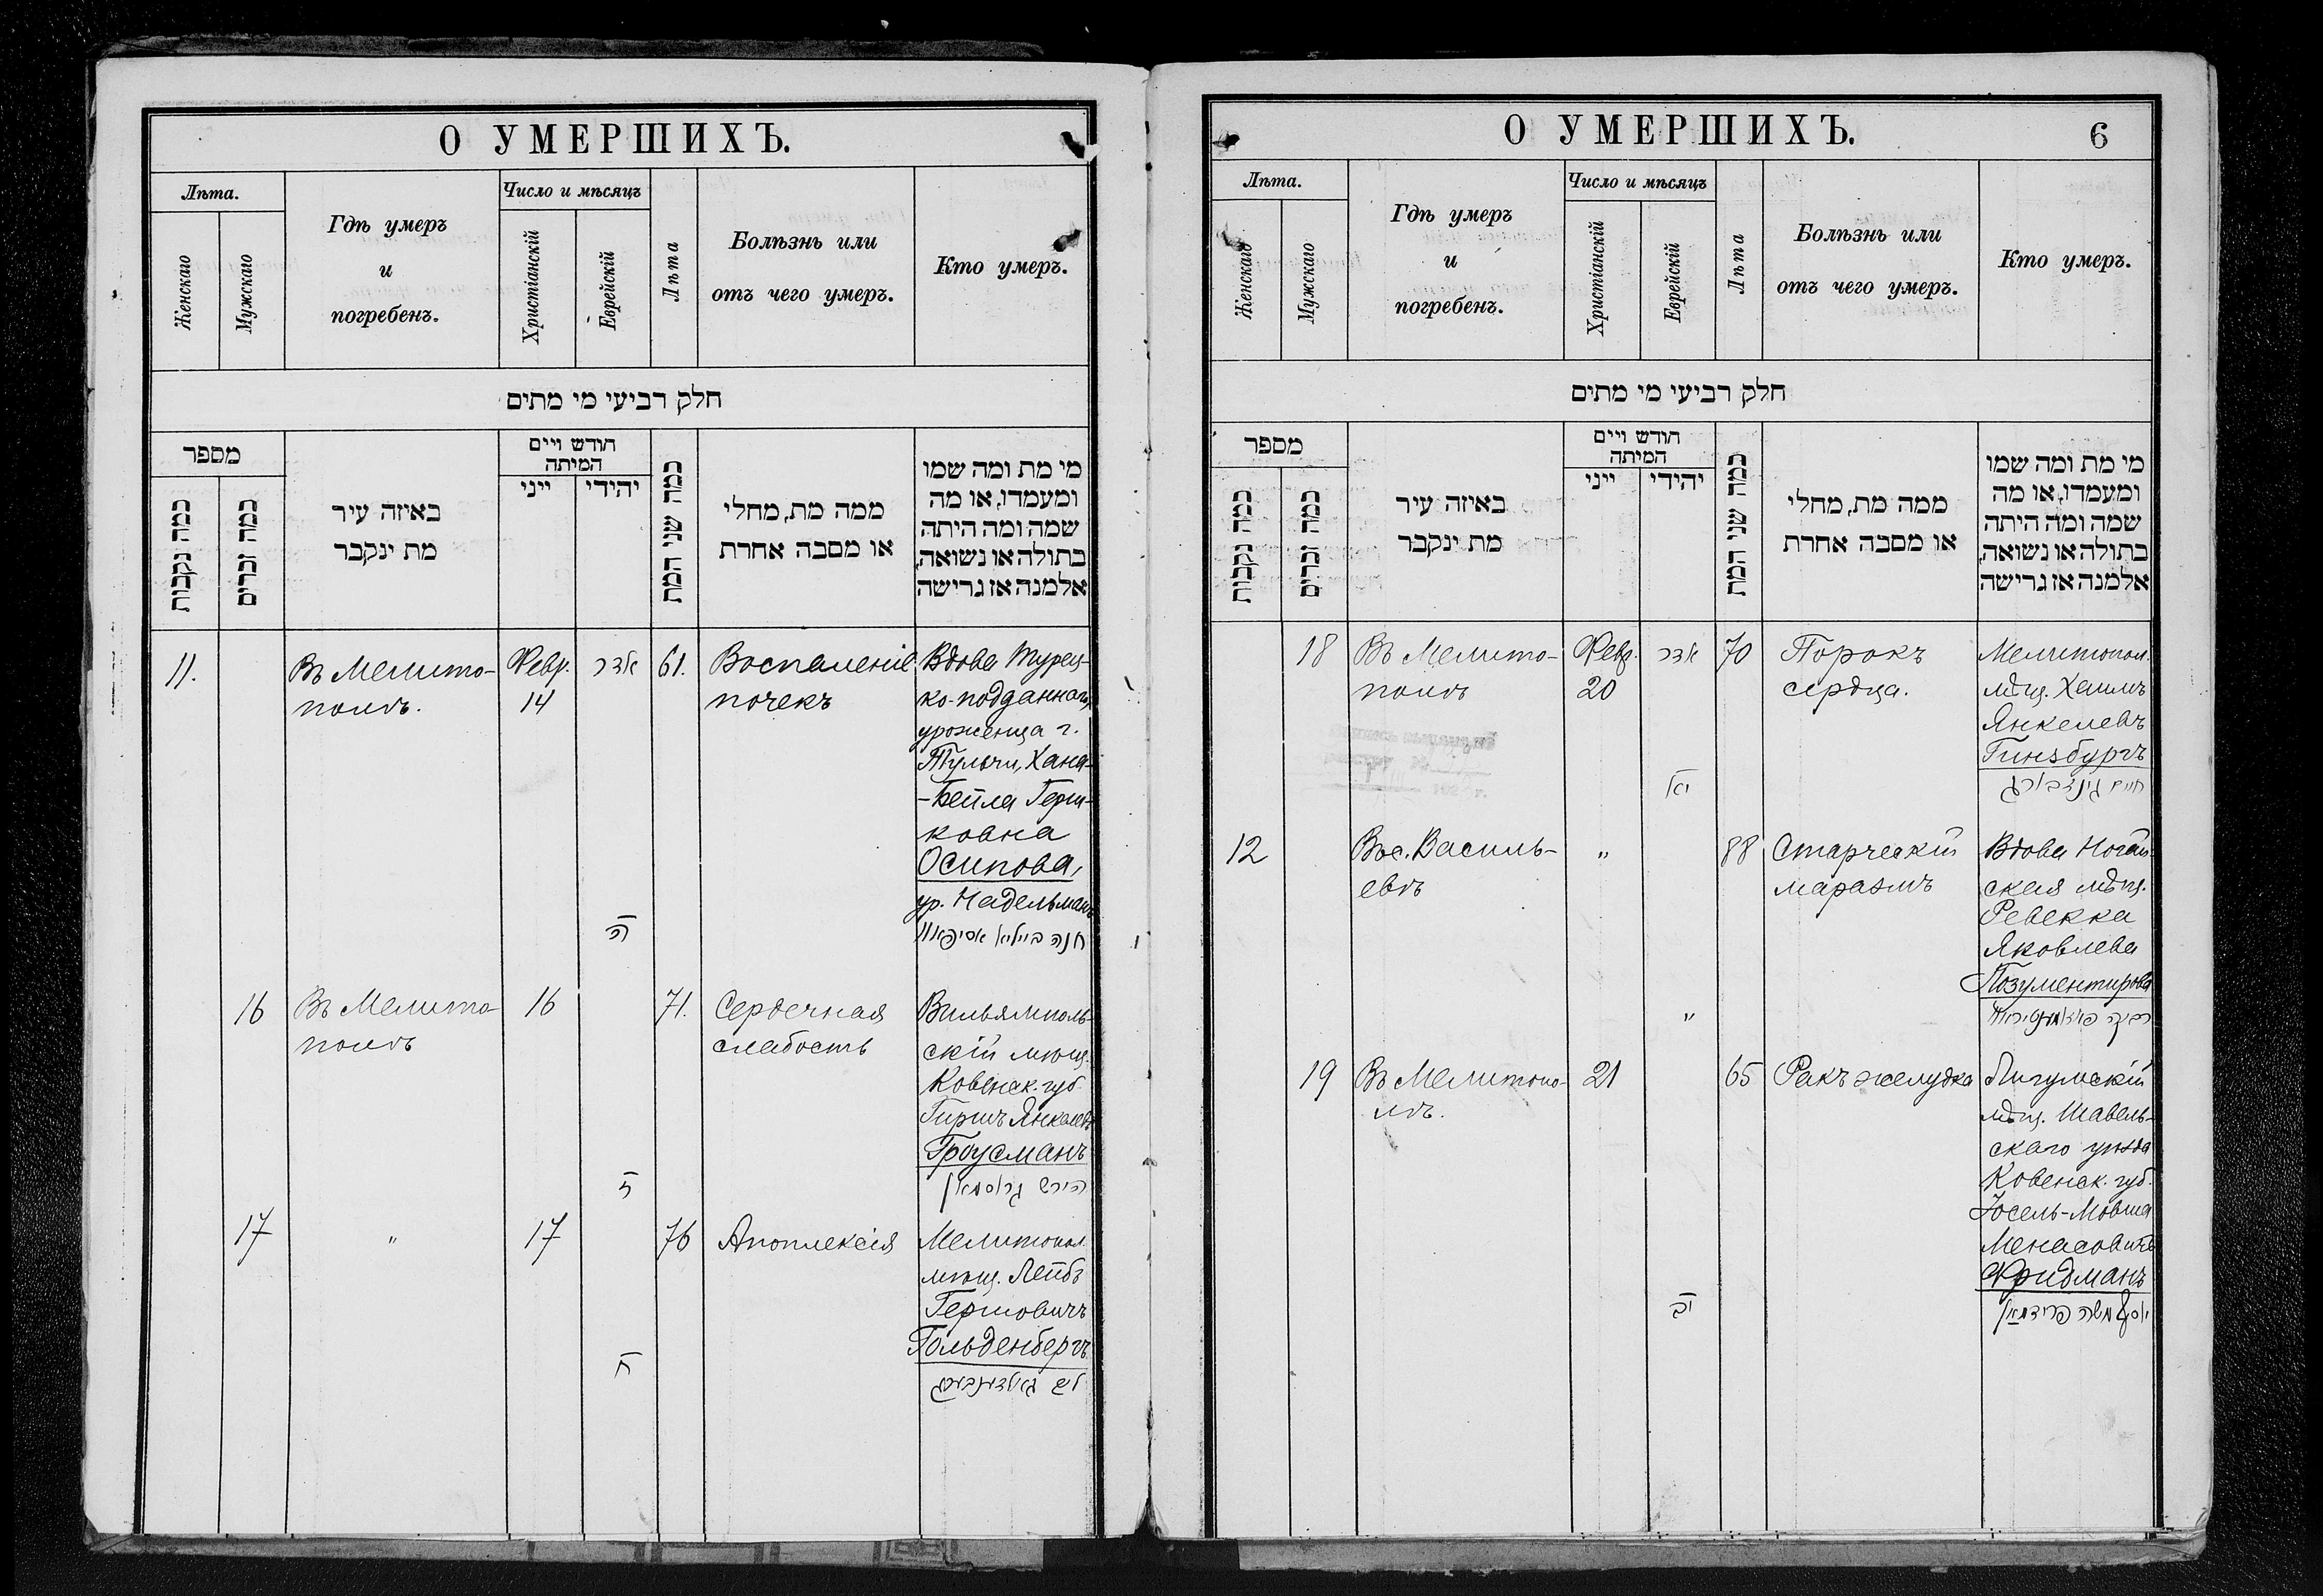 О УМЕРШИХЪ.
Лѣта.
Женскаго
Мужскаго
Гдѣ умеръ
и
погребенъ.
Число и мѣсяцъ
Христіанскій
Еврейскій
Лѣта
Болѣзнь или
отъ чего умеръ.
Кто умеръ.
חלק רביעי מי מתים
מספר
כמה נקבות
כמה זכרים
באיזה עיר
מת ינקבר
חודש ויים
המיתה
ייני
יהידי
כמה שני המת
ממה מת, מחלי
או מסבה אחרת
מי מת ומה שמו
ומעמדו, או מה
שמה ומה היתה
בתולה או נשואה,
אלמנה אז גרישה
11.
Въ Мелито-
полѣ.
Февр.
14
אדר
ה
61.
Воспаленіе
почекъ
Вдова Турец-
ко-подданнаго,
уроженца г.
Тульчи, Хана-
-Бейла Герш-
ковна
Осипова,
ур. Надельманъ
חנה ביילא אסיפאוו
16
Въ Мелито-
полѣ
16
71.
Сердечная
слабость
Вильямполь-
скій мѣщ.
Ковенск. губ.
Гиршъ Янкелевъ
Гроусманъ
הירש גראסמאן
17
"
17
ח
76
Апоплексія
Мелитопол.
мѣщ. Лейбъ
Гершовичъ
Гольденбергъ
ליב גאלדענבערג
О УМЕРШИХЪ.
6
Лѣта.
Женскаго
Мужскаго
Гдѣ умеръ
и
погребенъ.
Число и мѣсяцъ
Христіанскій
Еврейскій
Лѣта
Болѣзнь или
отъ чего умеръ.
Кто умеръ.
חלק רביעי מי מתים
מספר
כמה נקבות
כמה זכרים
באיזה עיר
מת ינקבר
חודש ויים
המיתה
ייני
יהידי
כמה שני המת
ממה מת, מחלי
או מסבה אחרת
מי מת ומה שמו
ומעמדו, או מה
שמה ומה היתה
בתולה או נשואה,
אלמנה אז גרישה
18
Въ Мелито-
полѣ
Февр.
20
אדר
יא
70
Порокъ
сердца.
Мелитопол.
мѣщ. Хаимъ
Янкелевъ
Гинзбургъ
חיים גינזבורג
12
Въ с. Василь-
евкѣ
"
"
88
Старческій
маразмъ
Вдова Ногай-
ская мѣщ.
Ревекка
Яковлева
Позументирова
19
Въ Мелитопо-
лѣ.
21
יב
65
Ракъ желудка
Лигумскій
мѣщ. Шавель-
скаго уѣзда
Ковенск. губ.
Іосель-Мовша
Менасовичъ
Фридманъ
יאסל משה פרידמאן